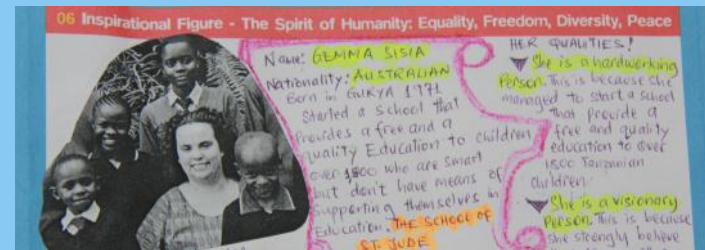 06 Inspirational Figure - The Spirit of Humanity: Equality, Freedom, Diversity, Peace
Name: GEMMA SISIA
Nationality: AUSTRALIAN
Born in GUKYA 1971
Started a school that
Provides a free and a
quality Education to children
over 1800 who are smart
but don't have means of
supporting themselves in
Education. THE SCHOOL OF
ST JUDE
HER QUALITIES!
She is a hardworking
Person. This is because she
managed to start a school
that provide a
free and quality
education to over
1800 Tanzanian
children.
She is a visionary
Person. This is because
she strongly believe